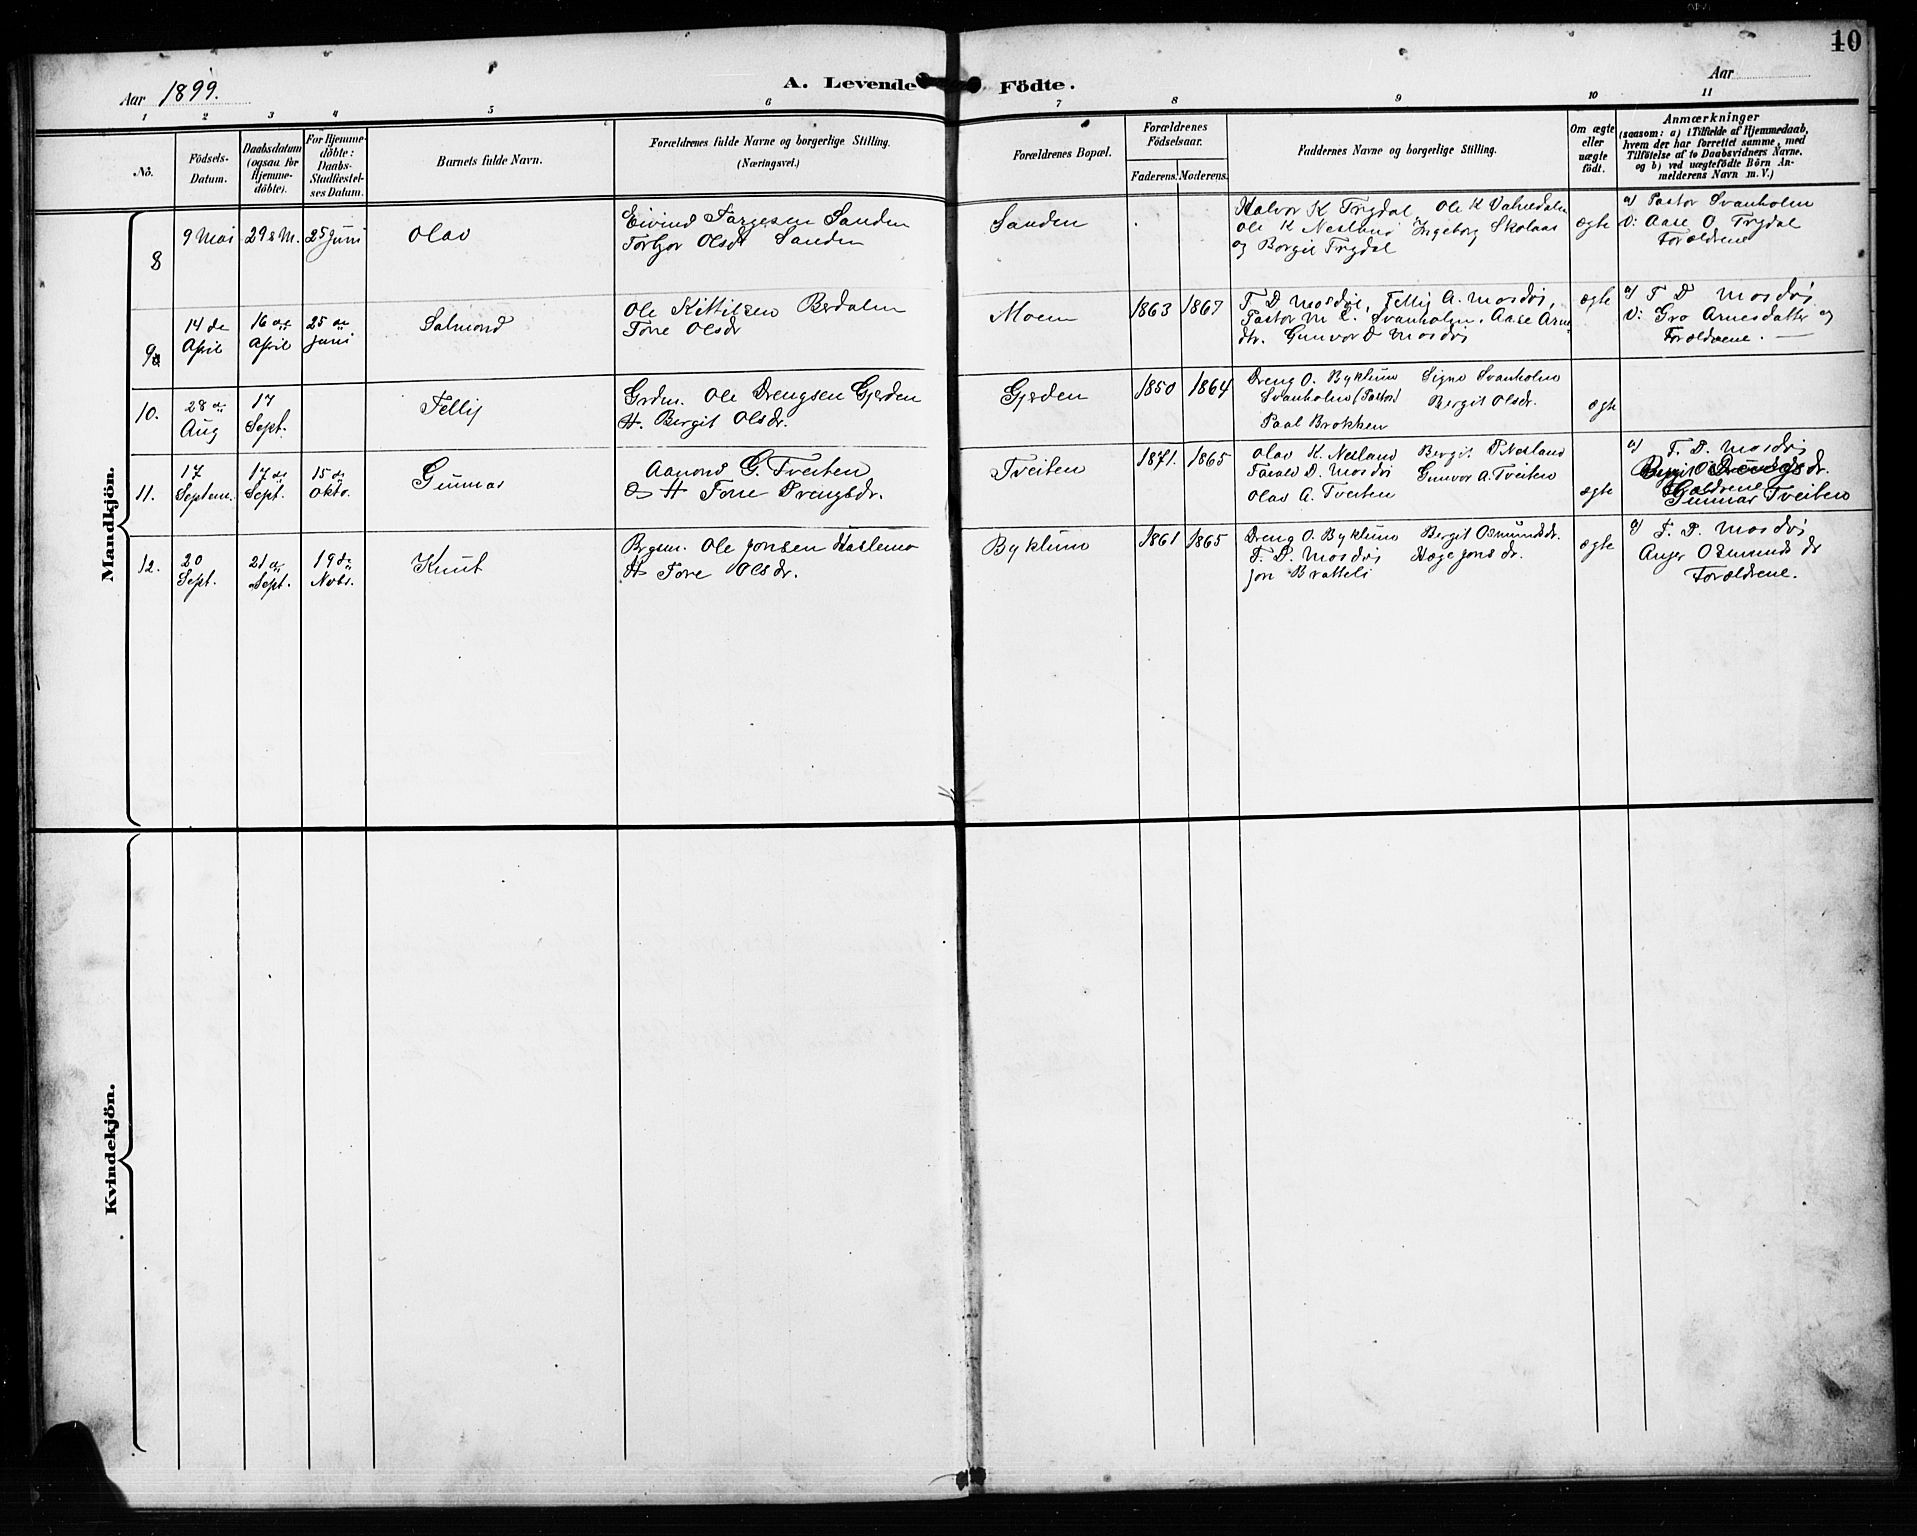 10
Aar 1899.
A. Levende Födte.
Aar
1 2 3 4 5 6 7 8 9 10 11
No.
Födsels-
Datum.
Daabsdatum
(ogsaa for
Hjemme-
döbte).
For Hjemme-
döbte:
Daabs-
Stadfæstel-
ses Datum.
Barnets fulde Navn.
Forældrenes fulde Navne og borgerlige Stilling.
(Næringsvei.)
Forældrenes Bopæl.
Forældrenes
Födselsaar.
Faderens. Moderens.
Faddernes Navne og borgerlige Stilling.
Om ægte
eller
uægte
født.
Anmærkninger
(saasom: a) i Tilfælde af Hjemmedaab,
hvem der har forrettet samme, med
Tilföielse af to Daabsvidners Navne.
og b) ved uægtefödte Börn An-
melderens Navn m. V.)
Mandkjön.
8
9 Mai
29 8 M.
25 Juni
Olav
Eivind Targesen Sanden
Torbjor Olsdt Sanden
Sanden
Halvor K Trydal, Ole K Vatnedalen
Ole K Nesland Ingeborg Skolaas
og Borgil Trydal
ægte
a) Pastor Svanholm
V: Aase O Trydal
Forældrene
9
14 de
April
16 de
April
25 de
Juni
Salmond
Ole Kittilsen Berdalen
Tone Olsdr
Moen
1863
1867
T D Mosdøl, Tellij A. Mosdøi,
Pastor M C. Svanholm, Aase Arne
dtr. Gunvor D Mosdøi
ægte
a) T D Mosdøi
V: Gro Arnesdatter og
Forældrene.
10.
28 de
Aug
17
Sept.
Tellij
Grdm. Ole Drengsen Gjerden
H. Bergit Olsdr.
Gjerden
1850
1864
Dreng O. Byklum Signe Svanholm
Svanholm (Pastor) Bergit Olsdr.
Paal Brokken
ægte
11.
17
Septem.
17 de
Sept.
15 de
Okto.
Gunnar
Aanond G. Tveiten
& H Tone Drengsdr.
Tveiten
1871.
1865
Olav K. Nesland Bergit D Nesland
Tarald D. Mosdøi Gunvor A. Tveiten
Olav A. Tveiten
ægte
a) T. D. Mosdøi
Gunnar Tveiten
12.
20
Sept.
21 de
Sept.
19 de
Nobr.
Knut
Bgsm. Ole Jonsen Hastemo
H Tone Olsdr.
Byklum
1861
1865
Dreng O. Byklum Bergit Osmundsdr.
T. D. Mosdøi Hæge Jonsdr.
Jon Bratteli
ægte
a) T. D. Mosdøi
Anjer Osmundsdr
Forældrene.
Kvindekjön.